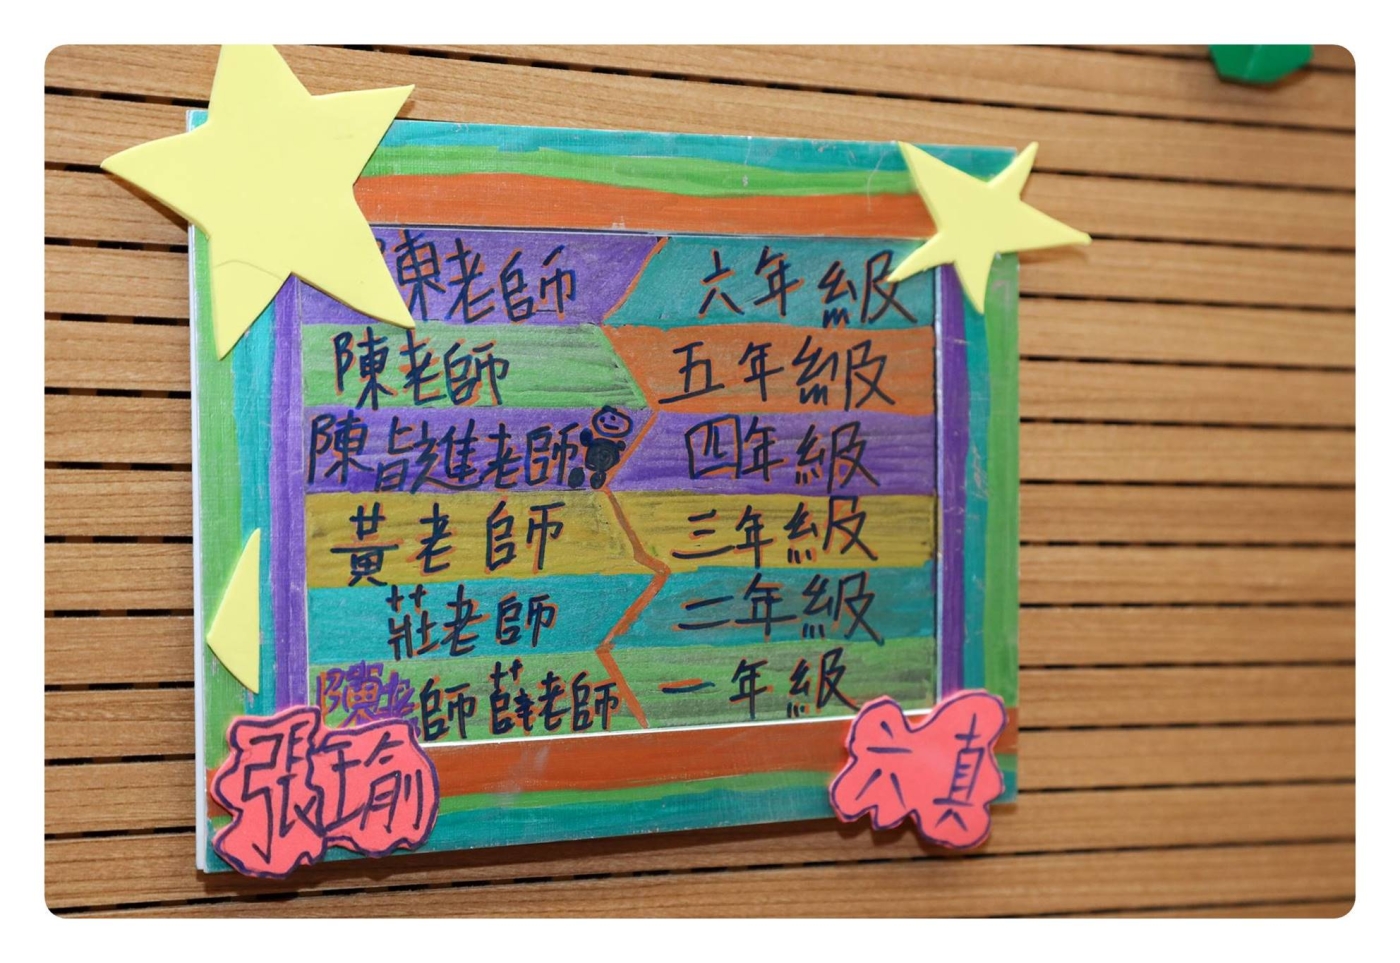 陳老師 六年級
陳老師 五年級
陳皆進老師 四年級
黃老師 三年級
莊老師 二年級
陳老師 薛老師 一年級
張年瑜 六真